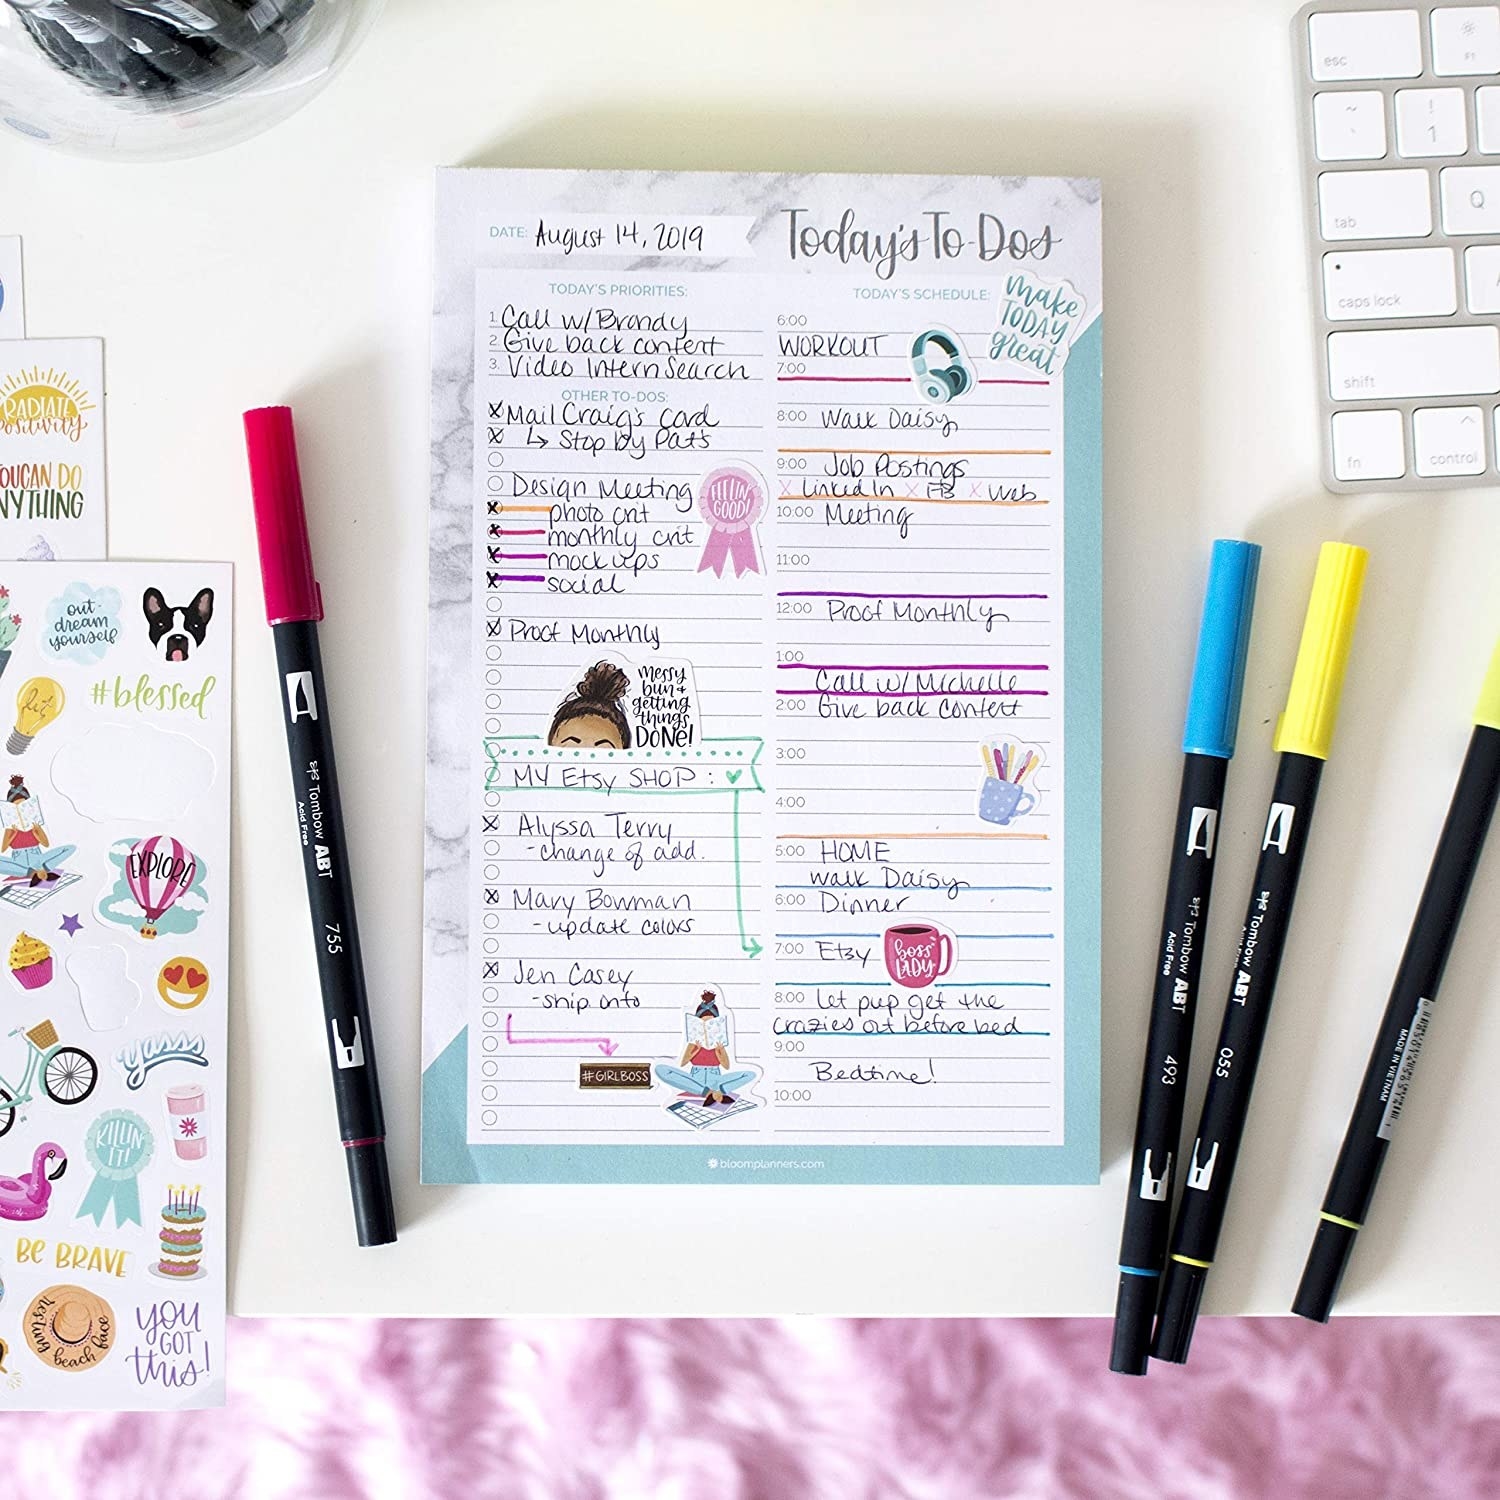 DATE: August 14, 2019
Today's To-Dos
TODAY'S PRIORITIES:
1. Call w/ Brandy
2. Give back content
3. Video Intern Search
OTHER TO-DOS:
X Mail Craig's card
X ↳ Stop by Pat's
Design Meeting
X photo crit
X monthly crit
X mock ups
X social
X Proof Monthly
messy
bun +
getting
things
DONE!
MY Etsy SHOP :
X Alyssa Terry
- change of add.
X Mary Bowman
- update colors
X Jen Casey
- ship onto
#GIRLBOSS
FEELIN
GOOD!
TODAY'S SCHEDULE:
make
TODAY
great
6:00
WORKOUT
7:00
8:00 Walk Daisy
9:00 Job Postings
X LinkedIn X FB X Web
10:00 Meeting
11:00
12:00 Proof Monthly
1:00
Call w/ Michelle
2:00 Give back content
3:00
4:00
5:00 HOME
walk Daisy
6:00 Dinner
7:00 Etsy
boss
LADY
8:00 Let pup get the
crazies out before bed
9:00
Bedtime!
10:00
bloomplanners.com
RADIATE
positivity
YOU CAN DO
ANYTHING
out-
dream
yourself
lit
#blessed
EXPLORE
yasss
KILLIN
IT!
BE BRAVE
resting
beach face
YOU
GOT
this!
Tombow ABT
Acid Free
755
Tombow ABT
Acid Free
493
Tombow ABT
Acid Free
055
MADE IN VIETNAM
esc
F1
~
`
!
1
tab
Q
caps lock
A
shift
fn
control